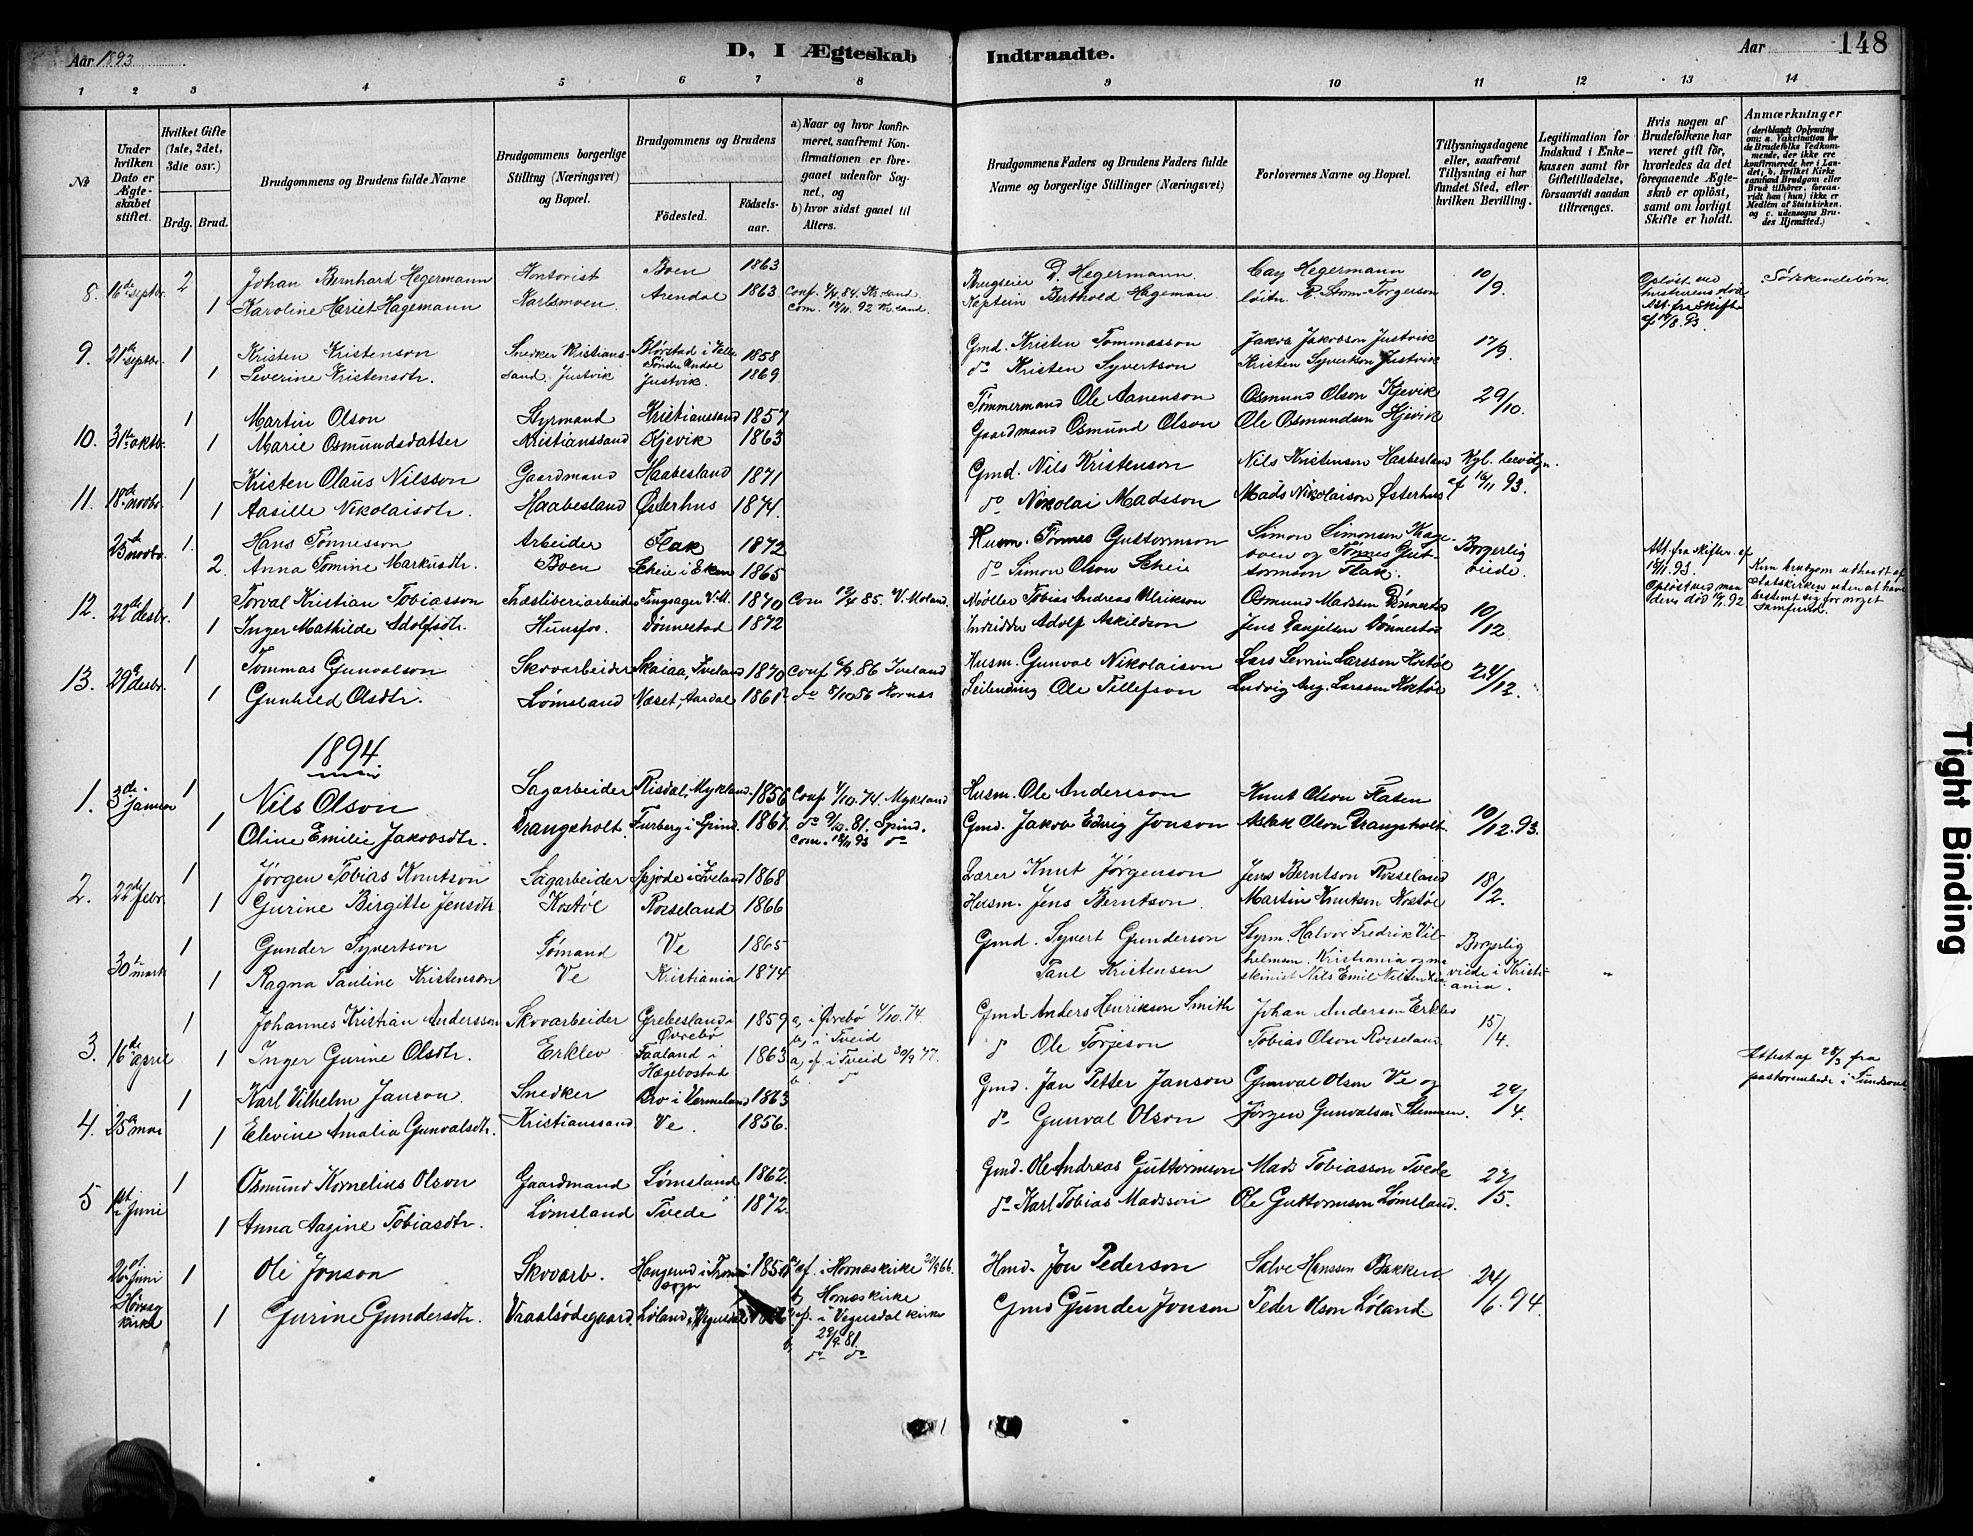 Aar 1893.
D, I Ægteskab Indtraadte.
Aar 148
1 2 3 4 5 6 7 8 9 10 11 12 13 14
№
Under hvilken Dato er Ægteskabet stiftet.
Hvilket Gifte (1ste, 2det, 3die osv.)
Brdg. Brud.
Brudgommens og Brudens fulde Navne
Brudgommens borgerlige Stilling (Næringsvei) og Bopæl.
Brudgommens og Brudens
Fødested. Fødselsaar.
a) Naar og hvor konfirmeret, saafremt Konfirmationen er foregaaet udenfor Sognet, og
b) hvor sidst gaaet til Alters.
Brudgommens Faders og Brudens Faders fulde Navne og borgerlige Stillinger (Næringsvei)
Forlovernes Navne og Bopæl.
Tillysningsdagene eller, saafremt Tillysning ei har fundet Sted, efter hvilken Bevilling.
Legitimation for Indskud i Enkekassen samt for Giftetilladelse, forsaavidt saadan tiltrænges.
Hvis nogen af Brudefolkene har været gift før, hvorledes da det foregaaende Ægteskab er opløst, samt om lovligt Skifte er holdt.
Anmærkninger (deriblandt Oplysning om: a. Vakcination for de Brudefolks Vedkommende, der ikke ere konfirmerede her i Landet; b. hvilket Kirkesamfund Brudgom eller Brud tilhører, forsaavidt han (hun) ikke er Medlem af Statskirken, og c. udensogns Brudes Hjemsted.)
8. 16de septbr. 2 Johan Bernhard Hegermann Kontorist Boen 1863 Brugseier D. Hegermann Cay Hegermann 10/9 Opløst ved hustruens død Att. fra Skifte Søskendebørn.
1 Karoline Hariet Hagemann Karlsmoen Arendal 1863 Conf. 84 Kr.sand Com. 92 Kr.sand. Berthold Hageman. Torgerson
9. 21de septbr. 1 Kristen Kristenson Snedker Kristians- 1858 Gmd. Kristen Tommasson Jakob Jakobson Justvik 17/9.
1 Severine Kristensdtr. sand. Justvik Justvik. 1869 do Kristen Syvertson Kristen Syvertson Justvik
10. 31te oktbr. 1 Martin Olson Styrmand Kristianssand 1857 Tømmermand Ole Aanenson Osmund Olson Kjevik 29/10.
1 Marie Osmundsdatter Kristianssand Kjevik 1863 Gaardmand Osmund Olson Ole Osmundsen Kjevik
11. 18de novbr. 1 Kristen Olaus Nilsson Gaardmand Haabesland 1871 Gmd. Nils Kristenson Nils Kristenson Haabesland Kgl. bevilgn.
1 Aasille Nikolaisdtr. Haabesland Østerhus 1874. do Nikolai Madsson Mads Nikolaison Østerhus af 16/11 93.
25de novbr. 1. Hans Tønnesson Arbeider Flak 1872 Husm. Tønnes Guttormson Simon Simonsen og Tønnes Gut- Borgerlig Att. fra skifter. af 15/11 93.
2. Anna Tomine Markusdtr. Boen Scheie i Eken 1865 do Simon Olson Scheie tormson Flak. viede. Opløst ved mandens død 92 Kun brudgom udtraadt af statskirken uden at have bestemt sig for noget samfund.
12. 22de desbr. 1 Torval Kristian Tobiasson Træsliberiarbeider Tingsager V.M. 1870 Com 85. V. Moland. Møller Tobias Andreas Ulrikson Osmund Madssen Dønnestad 10/12
1 Inger Mathilde Adolfsdtr. Hunsfos. Dønnestad 1872 Inderster Adolf Askildson Jens Danjelsen Dønnestad
13. 29de desbr. 1 Tommas Gunvalson Skovarbeider Skaiaa, Iveland 1870 Conf 86 Iveland Husm. Gunval Nikolaison Lars Severin Larssen Kostøl 24/12.
1 Gunhild Olsdtr. Lømsland Næset, Aardal 1861 do 8/10 86 Hornnes Leilending Ole Tellefson Ludvig Aug. Larssen Kostøl
1894.
1. 3de januar 1 Nils Olson Sagarbeider Risdal, Mykland. 1856 Conf. 4/10. 74. Mykland Husm. Ole Andersson Knut Olson Flaten
1 Oline Emilie Jakobsdtr. Drangsholt. Furberg i Spind. 1867. do 81. Spind. Com. 93 do Gmd. Jakob Edvig Jonson Aslak Olson Drangsholt. 10/12. 93.
2. 22de febr. 1 Jørgen Tobias Knutson Sagarbeider Skjøde i Iveland 1868 Lærer Knut Jørgenson Jens Berntson Rosseland 18/2.
1 Gurine Birgitte Jensdtr Kostøl Rosseland 1866 Husm. Jens Berntson. Martin Knutsen Kostøl
30te marts 1 Gunder Syvertson Sømand Ve 1865 Gmd. Syvert Gunderson Styrm. Halvor Fredrik Vil- Borgerlig
1 Ragna Pauline Kristenson Ve Kristiania 1874 Paul Kristensen helmsen. Kristiania og maskinist Nils Emil Nilsen viede i Kristiania.
3. 16de april 1 Johannes Kristian Andersson Skovarbeider Grebesland i Øvrebø 1859 a, i Øvrebø 4/10. 74. b, i Tveid Gmd. Anders Henrikson Smith Johan Andersen Erklev 15/4.
1 Inger Gurine Olsdtr. Erklev Faaland i Hægebostad 1863 a, cf. i Tveid 30/9 77. b. do Ole Torjeson Tobias Olson Rosseland
4. 25de mai 1 Karl Vilhelm Janson. Snedker Bro i Vermeland 1863 Gmd. Jan Petter Janson Gunval Olson Ve og 29/4. Attest af 28/3 fra pastorembede i Sundsval
1 Elevine Amalia Gunvalsdtr. Kristianssand Ve. 1856. do Gunval Olson Jørgen Gunvalsen Stemmen.
5 1st Juni 1 Osmund Kornelius Olson Gaardmand Lømsland 1862. Gmd. Ole Andreas Guttormson Mads Tobiasson Tvede 27/5.
1 Anna Aagine Tobiasdtr. Lømsland Tvede 1872. do Karl Tobias Madsson Ole Guttormson Lømsland.
26de Juni 1 Ole Jonson Skovarb. 1850 a, cf. i Hornæs kirke 30/9 66. b, Hornæs kirke Hmd. Jon Pederson Salve Hanssen Bakken 24/6. 94.
Høvåg kirke 1 Gurine Gundersdtr. Vraalsødegaard. Løland, Vegusdal a, cf. i Vegusdal kirke 29/9. 81. b, do do Gmd Gunder Jonson Peder Olson Løland
Tight Binding